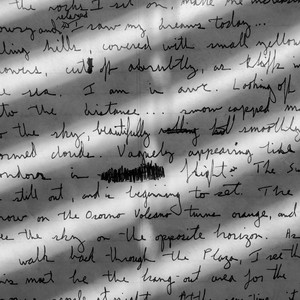 the rocks I sit on, make me
and I saw my dreams today...
lling hills, covered with small yellow
owers, cut off abruptly, as cliffs
e sea. I am in awe. Looking off
to the distance.... snow capped m
to the sky, beautifully smoothly
ormed clouds. Vaguely appearing like
ondor in flight. The Su
still out, and is beginning to set. The
now on the Osorno Volcano turns orange, and
ee the sky on the opposite horizon. As
walk back through the Plaza, I see th
is must be the hang-out area for the
people at night. At the